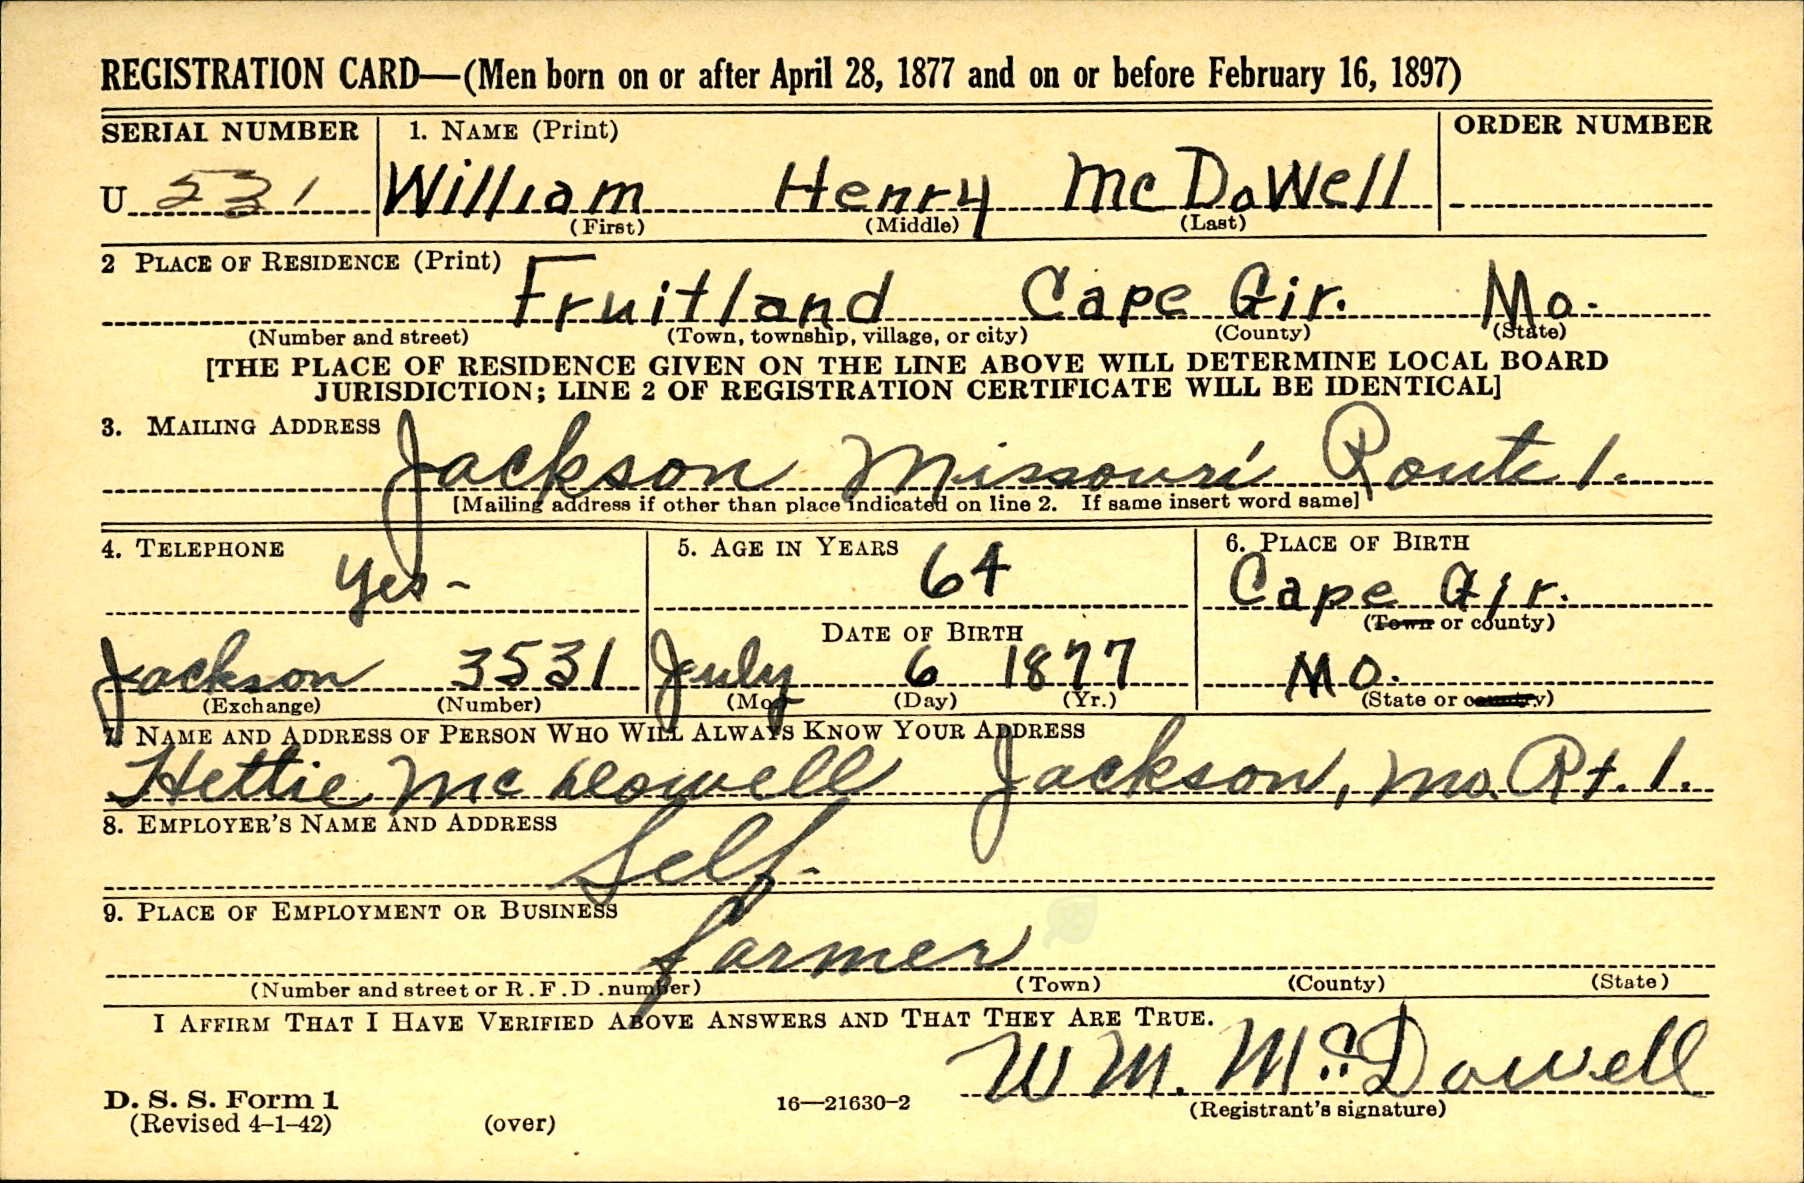 REGISTRATION CARD—(Men born on or after April 28, 1877 and on or before February 16, 1897)
SERIAL NUMBER 1. NAME (Print) ORDER NUMBER
U 531 William Henry McDowell
(First) (Middle) (Last)
2 PLACE OF RESIDENCE (Print)
Fruitland Cape Gir. Mo.
(Number and street) (Town, township, village, or city) (County) (State)
[THE PLACE OF RESIDENCE GIVEN ON THE LINE ABOVE WILL DETERMINE LOCAL BOARD
JURISDICTION; LINE 2 OF REGISTRATION CERTIFICATE WILL BE IDENTICAL]
3. MAILING ADDRESS
Jackson Missouri Route 1.
[Mailing address if other than place indicated on line 2. If same insert word same]
4. TELEPHONE 5. AGE IN YEARS 6. PLACE OF BIRTH
Yes- 64 Cape Gir.
DATE OF BIRTH (Town or county)
Jackson 3531 July 6 1877 Mo.
(Exchange) (Number) (Mo.) (Day) (Yr.) (State or country)
7. NAME AND ADDRESS OF PERSON WHO WILL ALWAYS KNOW YOUR ADDRESS
Hettie McDowell Jackson, Mo. Rt. 1.
8. EMPLOYER'S NAME AND ADDRESS
Self-
9. PLACE OF EMPLOYMENT OR BUSINESS
farmer
(Number and street or R.F.D. number) (Town) (County) (State)
I AFFIRM THAT I HAVE VERIFIED ABOVE ANSWERS AND THAT THEY ARE TRUE.
Wm. McDowell
D. S. S. Form 1
(Revised 4-1-42) (over) 16—21630-2 (Registrant's signature)